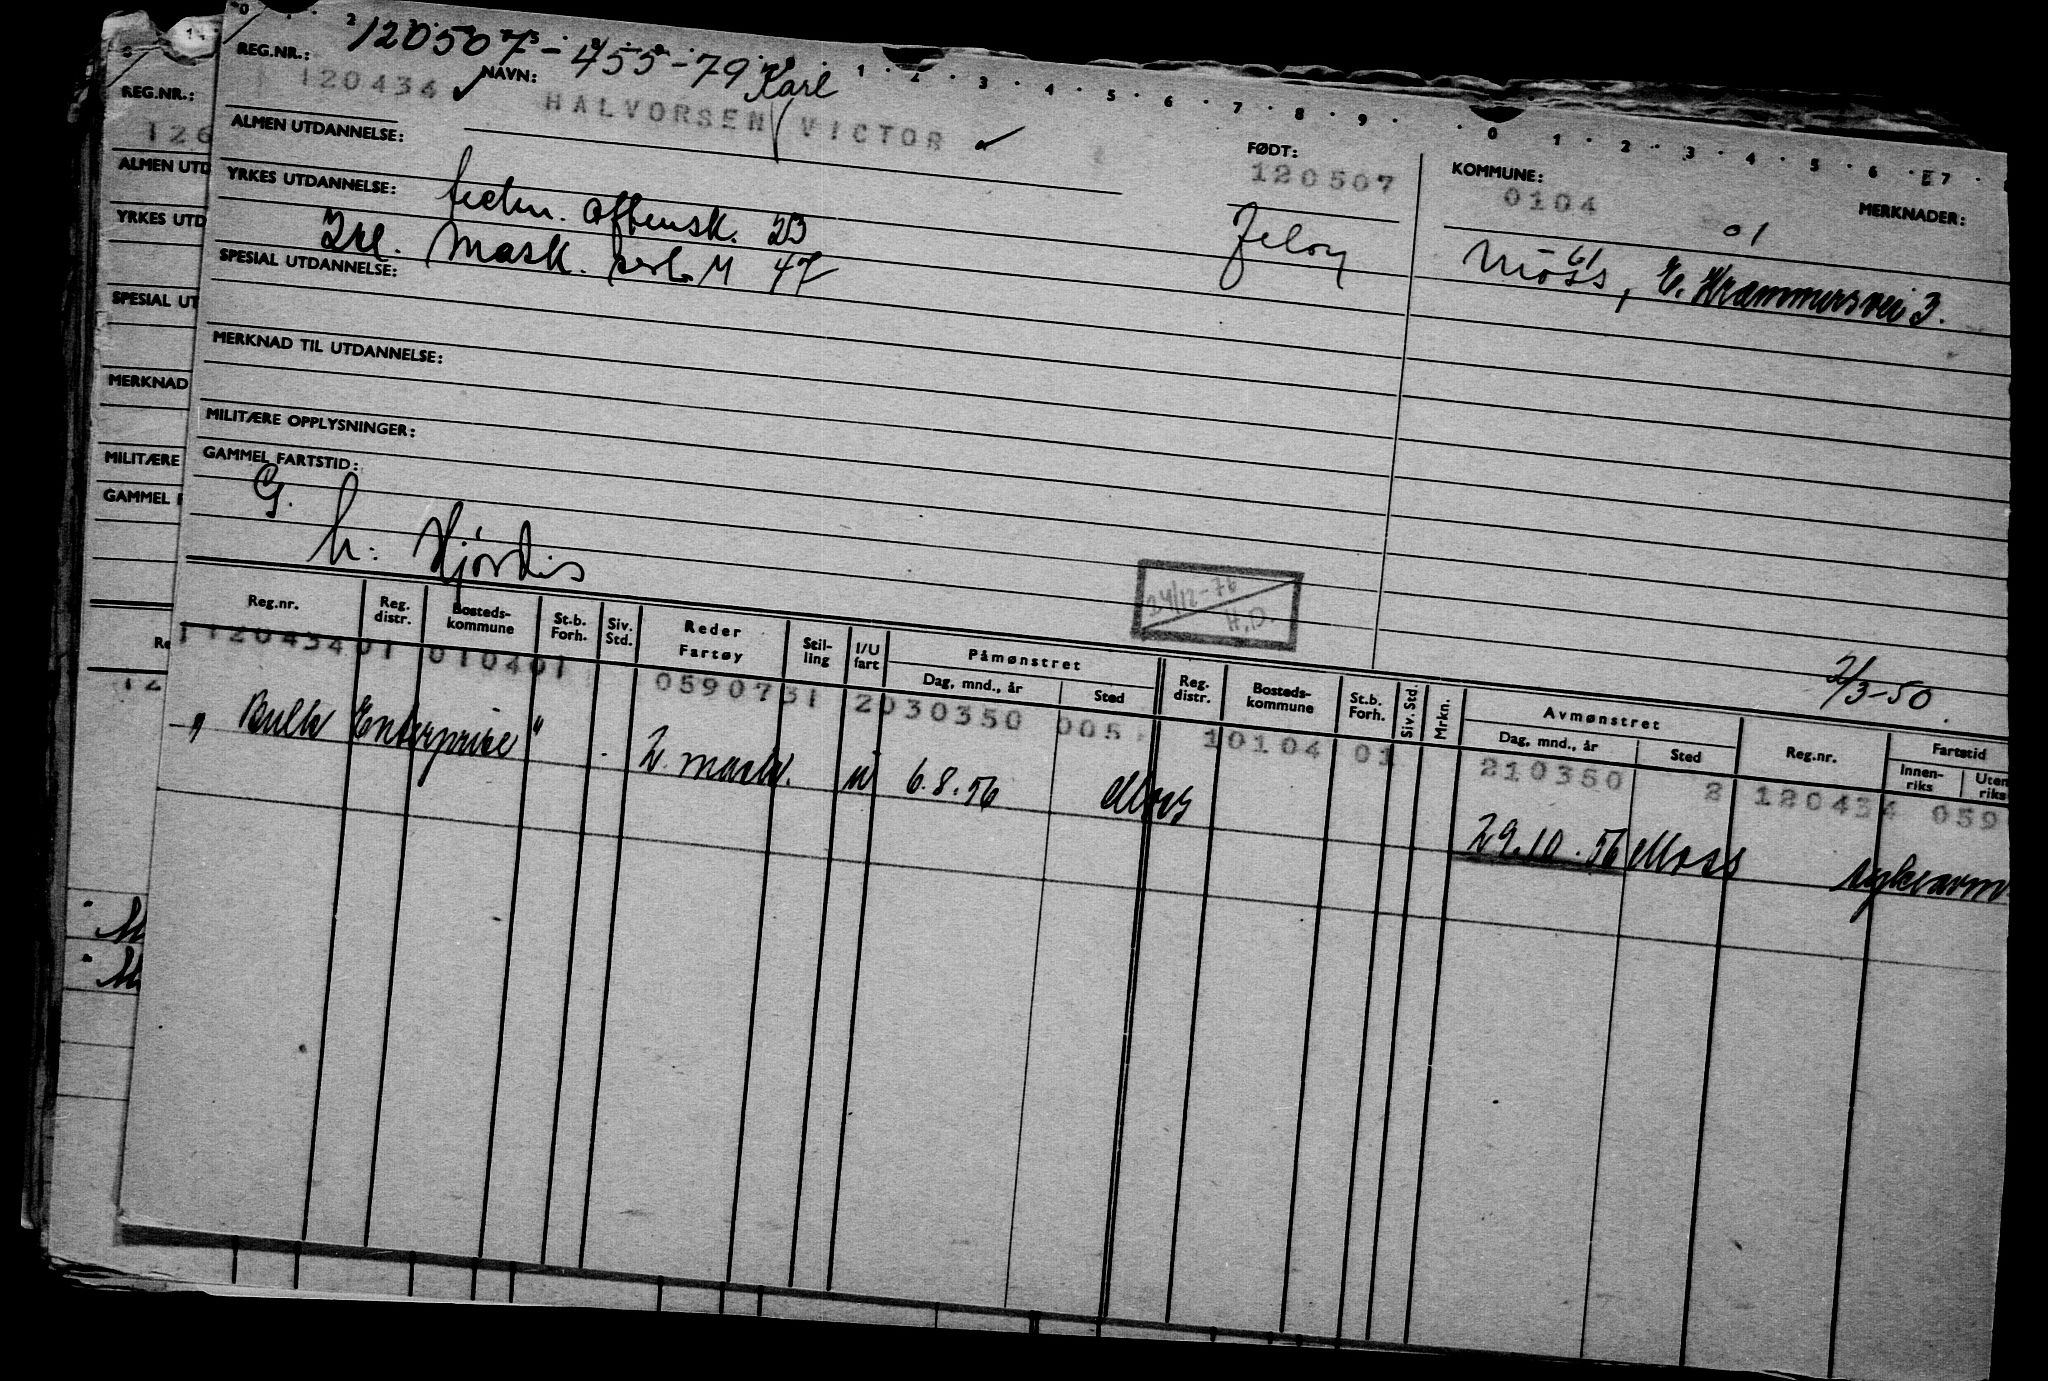 120507-45579
REG.NR.: 120434 ✓ NAVN: HALVORSEN / Karl VICTOR ✓
FØDT: 120507
KOMMUNE: 0104
MERKNADER:
ALMEN UTDANNELSE:
YRKES UTDANNELSE: techn. aftensk. 23
Jeløy
Moss, E. Krammersvei 3.
2kl. Mask. M 47
SPESIAL UTDANNELSE:
MERKNAD TIL UTDANNELSE:
MILITÆRE OPPLYSNINGER:
GAMMEL FARTSTID:
G.
h: Hjørdis
24/12-76
H.D.
21/3-50.
Reg.nr. Reg. distr. Bosteds-kommune St.b. Forh. Siv. Std. Reder Fartøy Stil-ling I/U fart Påmønstret Dag, mnd., år Sted Reg. distr. Bosteds-kommune St.b. Forh. Siv. Std. Mrkn. Avmønstret Dag, mnd., år Sted Reg.nr. Fartstid Innen-riks Uten-riks
112043401 010401 0590731 2030350 005 10104 01 210350 2 120434 059
"Bulk Enterprise" 2. mask. u 6.8.56 Moss 29.10.56 Moss
REG.NR.:
126
ALMEN UTD
YRKES UTD
SPESIAL UT
MERKNAD
MILITÆRE
GAMMEL